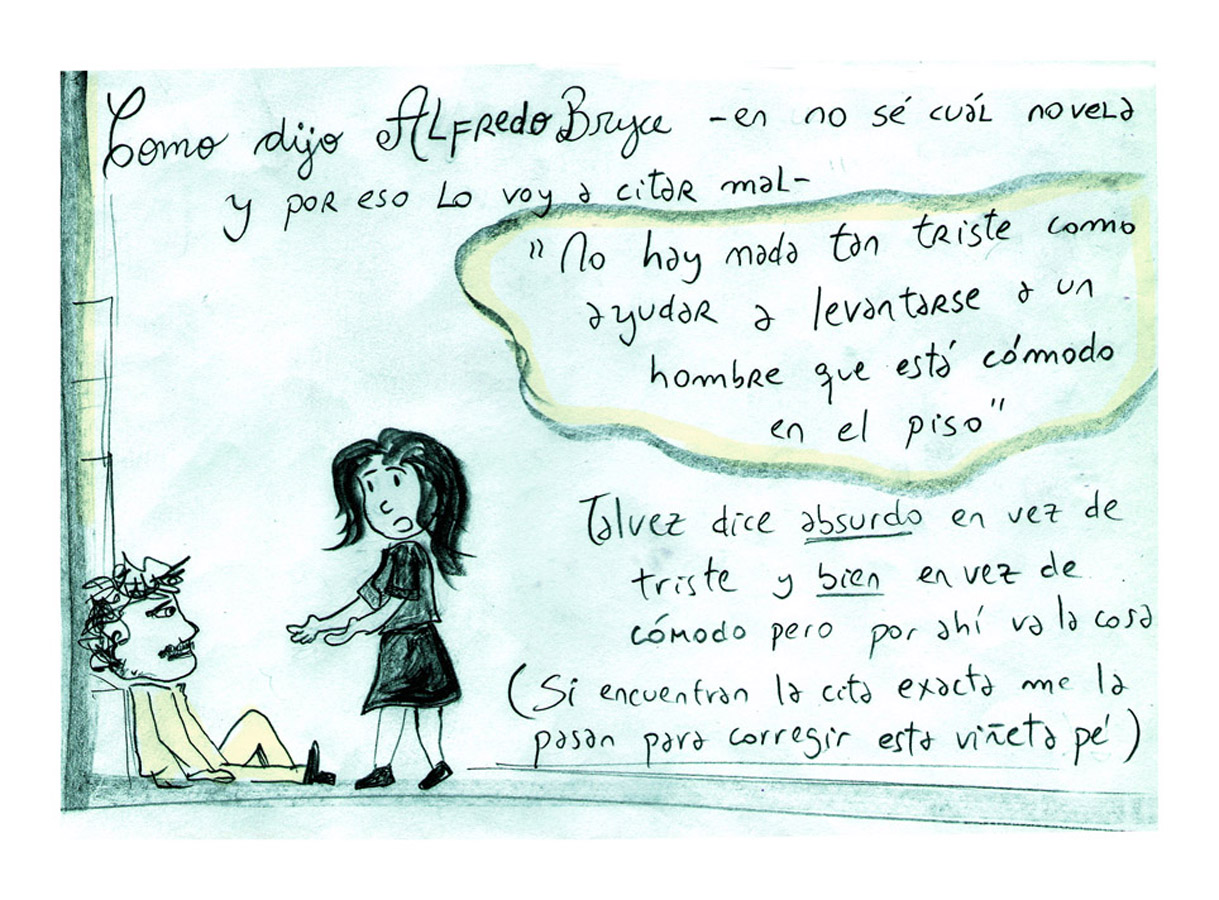 Como dijo ALFREDO Bryce -en no sé cuál novela
y por eso lo voy a citar mal-
"No hay nada tan triste como
ayudar a levantarse a un
hombre que está cómodo
en el piso"
Talvez dice absurdo en vez de
triste y bien en vez de
cómodo pero por ahí va la cosa
(Si encuentran la cita exacta me la
pasan para corregir esta viñeta pé)